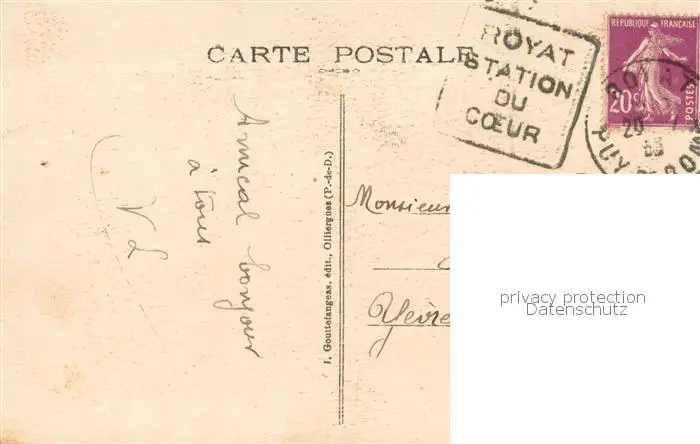 CARTE POSTALE
ROYAT
STATION
DU
CŒUR
REPUBLIQUE FRANÇAISE
20c
POSTES
ROYAT
20
PUY DE DOME
Amical bonjour
à tous
I. Gouttefangeas, édit., Olliergues (P.-de-D.)
Monsieur
privacy protection
Datenschutz